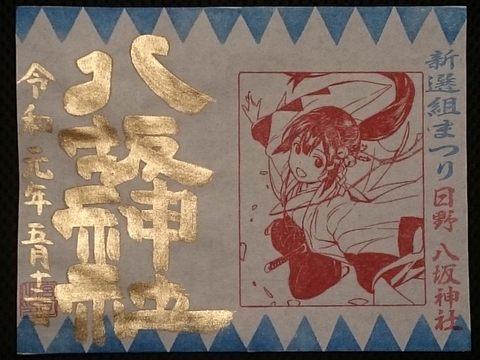 新選組まつり 日野 八坂神社
八坂神社
令和元年五月十一日